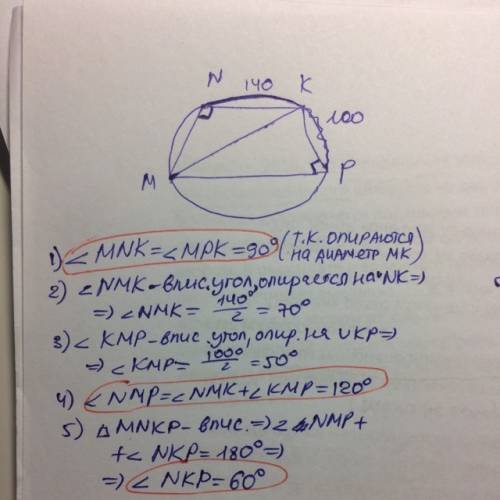 N 140 K
100
M P
1) ∠MNK=∠MPK=90° (Т.К. ОПИРАЮТСЯ
НА ДИАМЕТР МК)
2) ∠NMK-впис.угол,опирается на NK=)
=) ∠NMK= 140°/2 = 70°
3) ∠ KMP-впис.угол,опир. на ∪KP=)
=) ∠KMP= 100°/2 =50°
4) ∠NMP=∠NMK+∠KMP=120°
5) △ MNKP-впис.=) ∠NMP+
+∠NKP=180°=)
=) ∠ NKP=60°